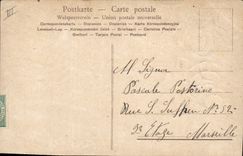 Postkarte — Carte postale
Weltpostverein — Union postale universelle
Correspondenzkarte — Dopisnice — Karta korespondencyjna
Levelező-Lap — Korrespondenzkarte — Briefkaart — Cartolina Postale
Brefkort — Tarjeta Postal — Postcard
M Signor
Pascale Postorino
Rue S. Suffren N° 82
3e Etage Marseille